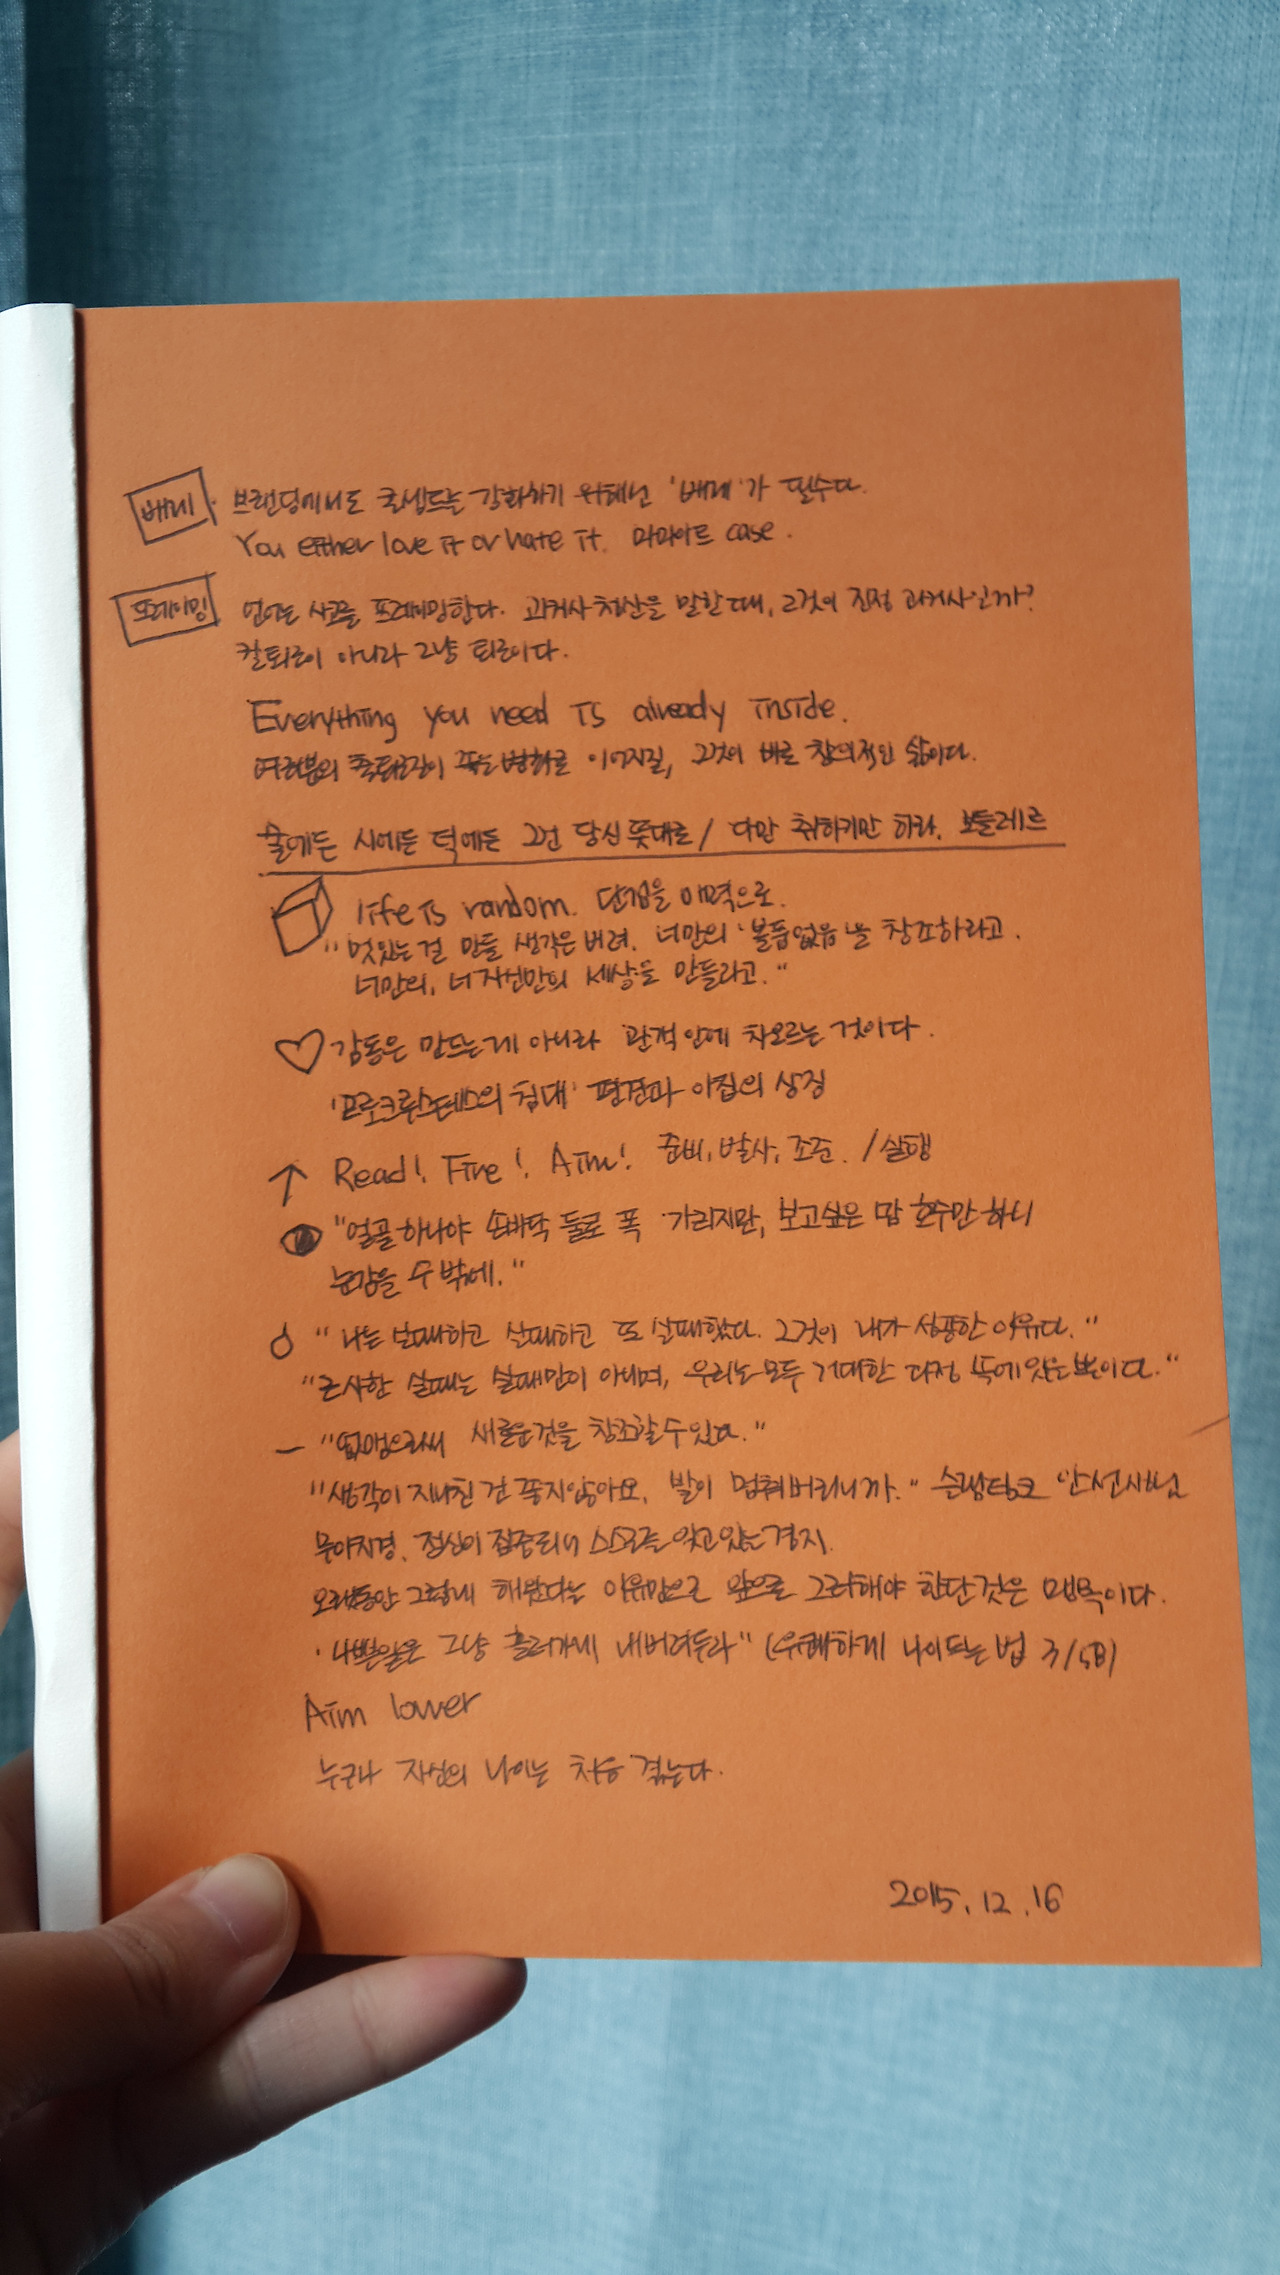 배제 브랜딩에서도 콘셉트는 강화하기 위해선 '배제'가 필수다.
You either love it or hate it. 마마이트 case.
프레이밍 언어는 사고를 프레이밍한다. 과거사 청산을 말할 때, 그것이 진정 과거사인가?
칼퇴근이 아니라 그냥 퇴근이다.
Everything you need is already inside.
여러분의 이어지길, 그것이 바로 창의적인 삶이다.
술에든 시에든 덕에든 그건 당신 뜻대로 / 다만 취하기만 하라. 보들레르
life is random. 단점을 매력으로.
"멋있는 걸 만들 생각은 버려. 너만의 '볼품없음'을 창조하라고.
너만의, 너 자신만의 세상을 만들라고."
감동은 만드는게 아니라 관객 안에 차오르는 것이다.
'프로크루스테스의 침대' 편견과 아집의 상징
Read! Fire! Aim! 준비, 발사, 조준. / 실행
"얼굴 하나야 손바닥 둘로 폭 가리지만, 보고싶은 맘 호수만 하니
눈감을 수 밖에."
"나는 실패하고 실패하고 또 실패했다. 그것이 내가 성공한 이유다."
"근사한 실패는 실패만이 아니며, 우리는 모두 거대한 과정 속에 있는 뿐이다."
새로운 것을 창조할 수 있다."
"생각이 지나친 건 좋지않아요. 발이 멈춰버리니까." 슬램덩크 안선생님
무아지경. 정신이 집중되어 스스로를 잊고 있는 경지.
오랫동안 그렇게 해왔다는 이유만으로 앞으로 그리해야 한단 것은 맹목이다.
"나쁜일은 그냥 흘러가게 내버려두라" (유쾌하게 나이드는 법 58)
Aim lower
누구나 자신의 나이는 처음 겪는다.
2015. 12. 16